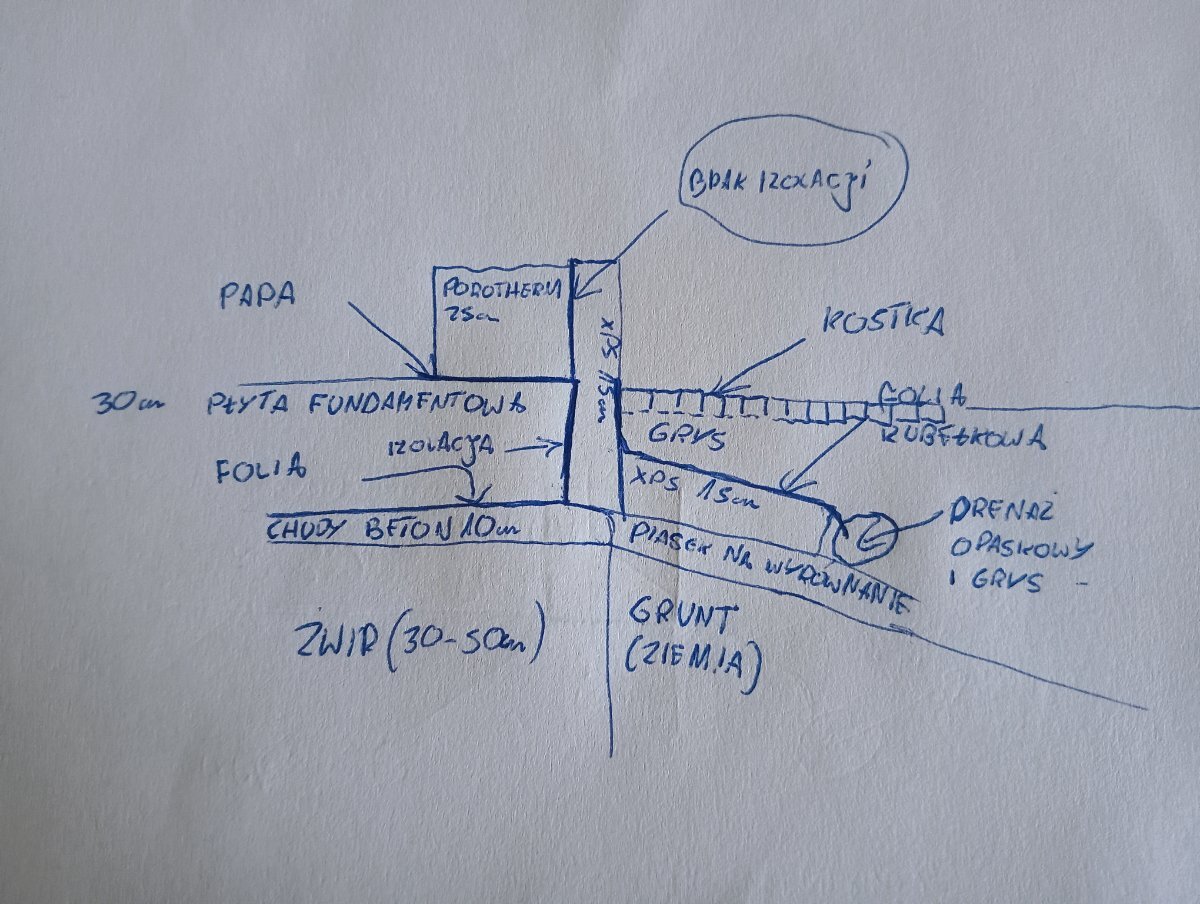 BRAK IZOLACJI
PAPA
POROTHERM
25cm
XPS 15cm
KOSTKA
30cm PŁYTA FUNDAMENTOWA
FOLIA
KUBEŁKOWA
GRYS
IZOLACJA
FOLIA
XPS 15cm
CHUDY BETON 10cm
PIASEK NA WYRÓWNANIE
DRENAŻ
OPASKOWY
I GRYS
ŻWIR (30-50cm)
GRUNT
(ZIEMIA)